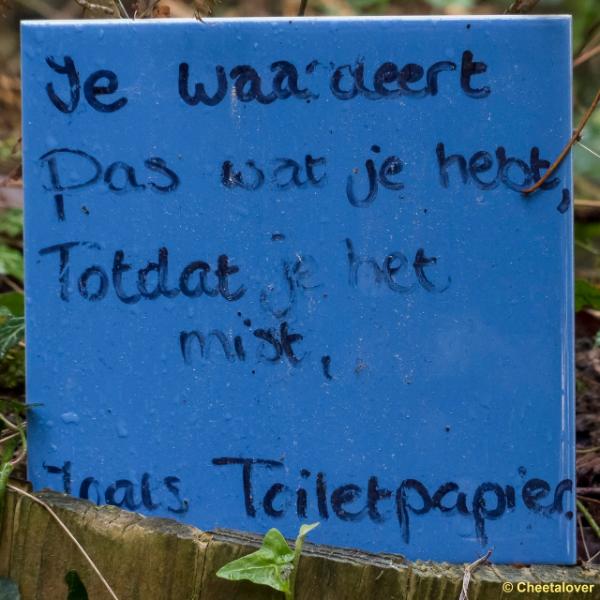 Je waardeert
Pas wat je hebt,
Totdat je het
mist,
Zoals Toiletpapier.
© Cheetalover